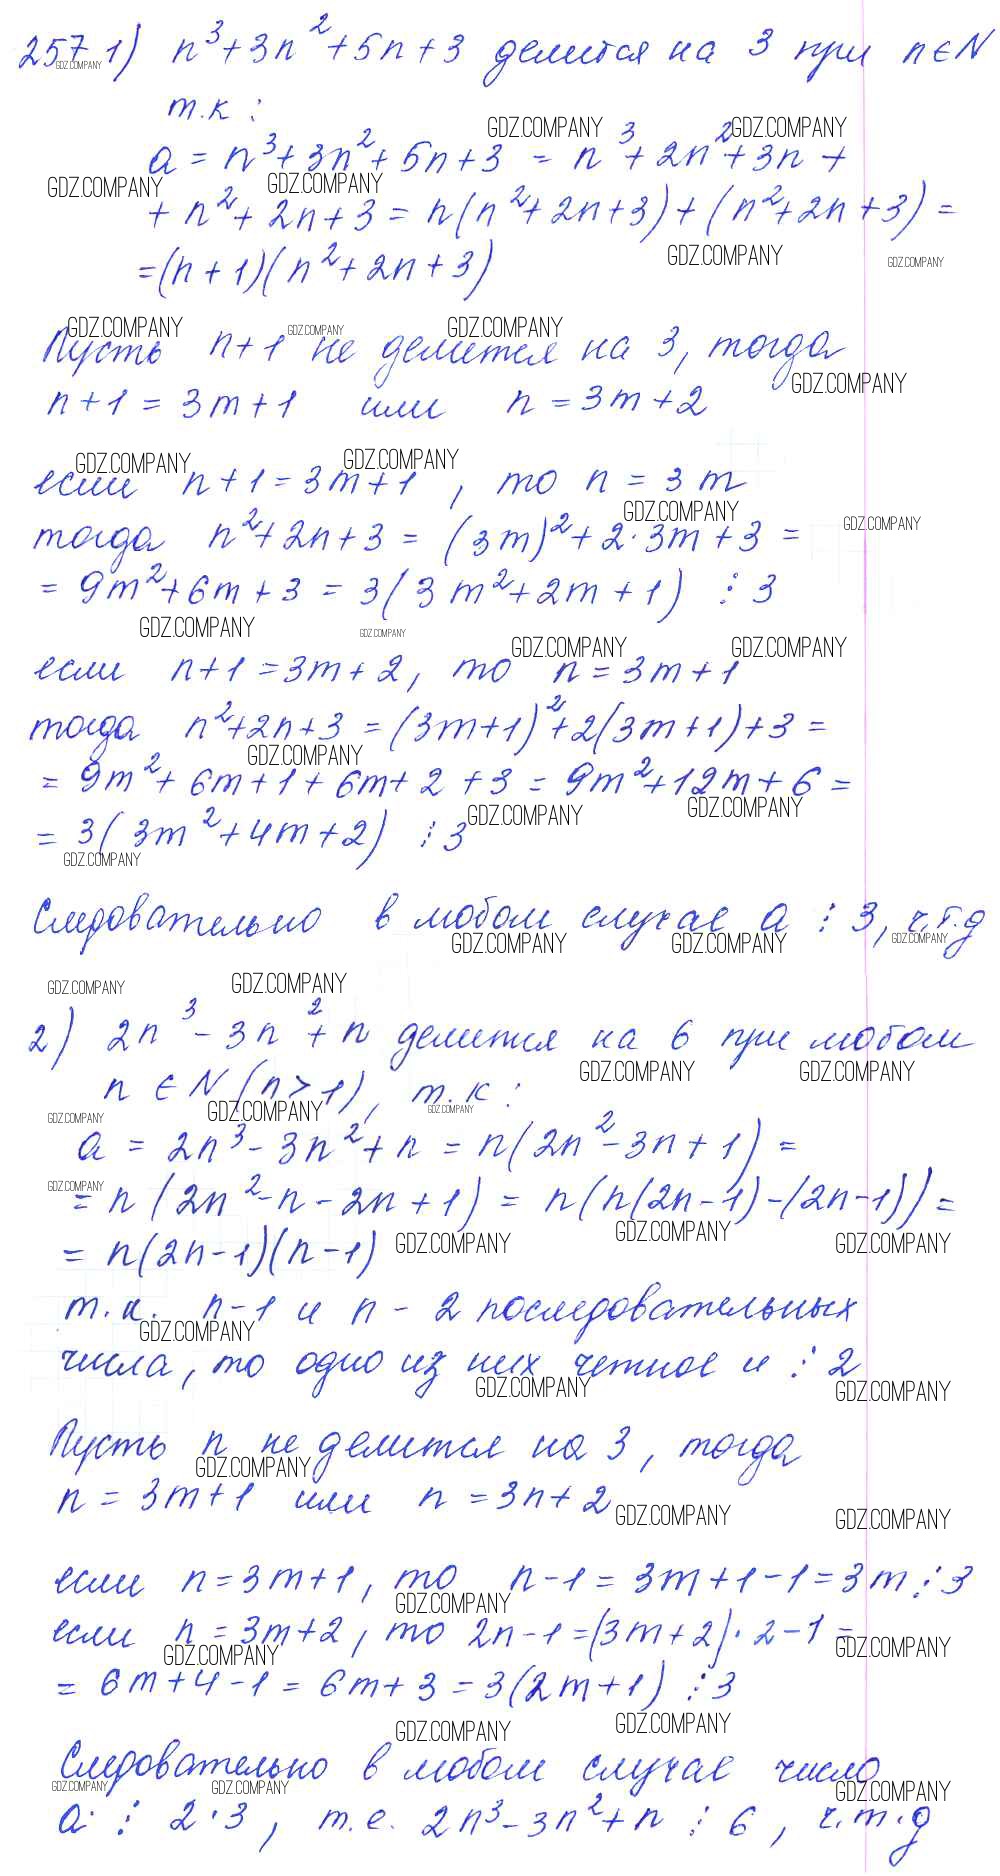 257 1) n³+3n²+5n+3 делится на 3 при n∈N
т.к:
a = n³+3n²+5n+3 = n³+2n²+3n +
+ n²+2n+3 = n(n²+2n+3)+(n²+2n+3) =
=(n+1)(n²+2n+3)
Пусть n+1 не делится на 3, тогда
n+1 = 3m+1 или n = 3m+2
если n+1=3m+1, то n = 3m
тогда n²+2n+3 = (3m)²+2·3m+3 =
= 9m²+6m+3 = 3(3m²+2m+1) ⋮ 3
если n+1=3m+2, то n=3m+1
тогда n²+2n+3 = (3m+1)²+2(3m+1)+3 =
= 9m²+6m+1+6m+2+3 = 9m²+12m+6 =
= 3(3m²+4m+2) ⋮ 3
Следовательно в любом случае a ⋮ 3, ч.т.д
2) 2n³-3n²+n делится на 6 при любом
n ∈ N (n>1), т.к:
a = 2n³-3n²+n = n(2n²-3n+1) =
= n(2n²-n-2n+1) = n(n(2n-1)-(2n-1)) =
= n(2n-1)(n-1)
т.к. n-1 и n-2 последовательных
числа, то одно из них четное и ⋮ 2
Пусть n не делится на 3, тогда
n = 3m+1 или n = 3n+2
если n=3m+1, то n-1=3m+1-1=3m ⋮ 3
если n=3m+2, то 2n-1=(3m+2)·2-1=
= 6m+4-1 = 6m+3 = 3(2m+1) ⋮ 3
Следовательно в любом случае число
a ⋮ 2·3, т.е. 2n³-3n²+n ⋮ 6, ч.т.д